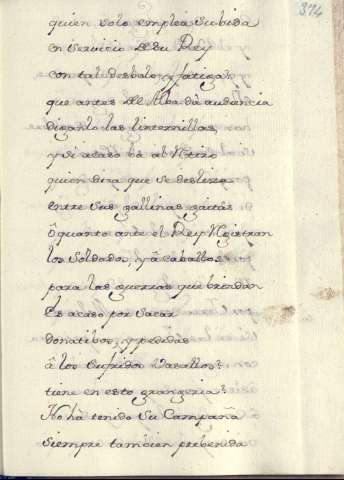 374
quien solo emplea su vida
en servicio de su Rey
con tal desbelo, y fatiga
que antes del Alba dà audiencia
diganlo las linternillas,
y si acaso bà al Retiro
quien dira que se desliza
entre sus gallinas
ô quanto ante el Rey Registran
los Soldados, y â caballos
para las guerras que brindan
Es acaso por sacar
donatibos, y pedidas
â los sufridos Vasallos?
tiene en esto grangeria?
No hà tenido su Campaña
siempre tambien prebenida